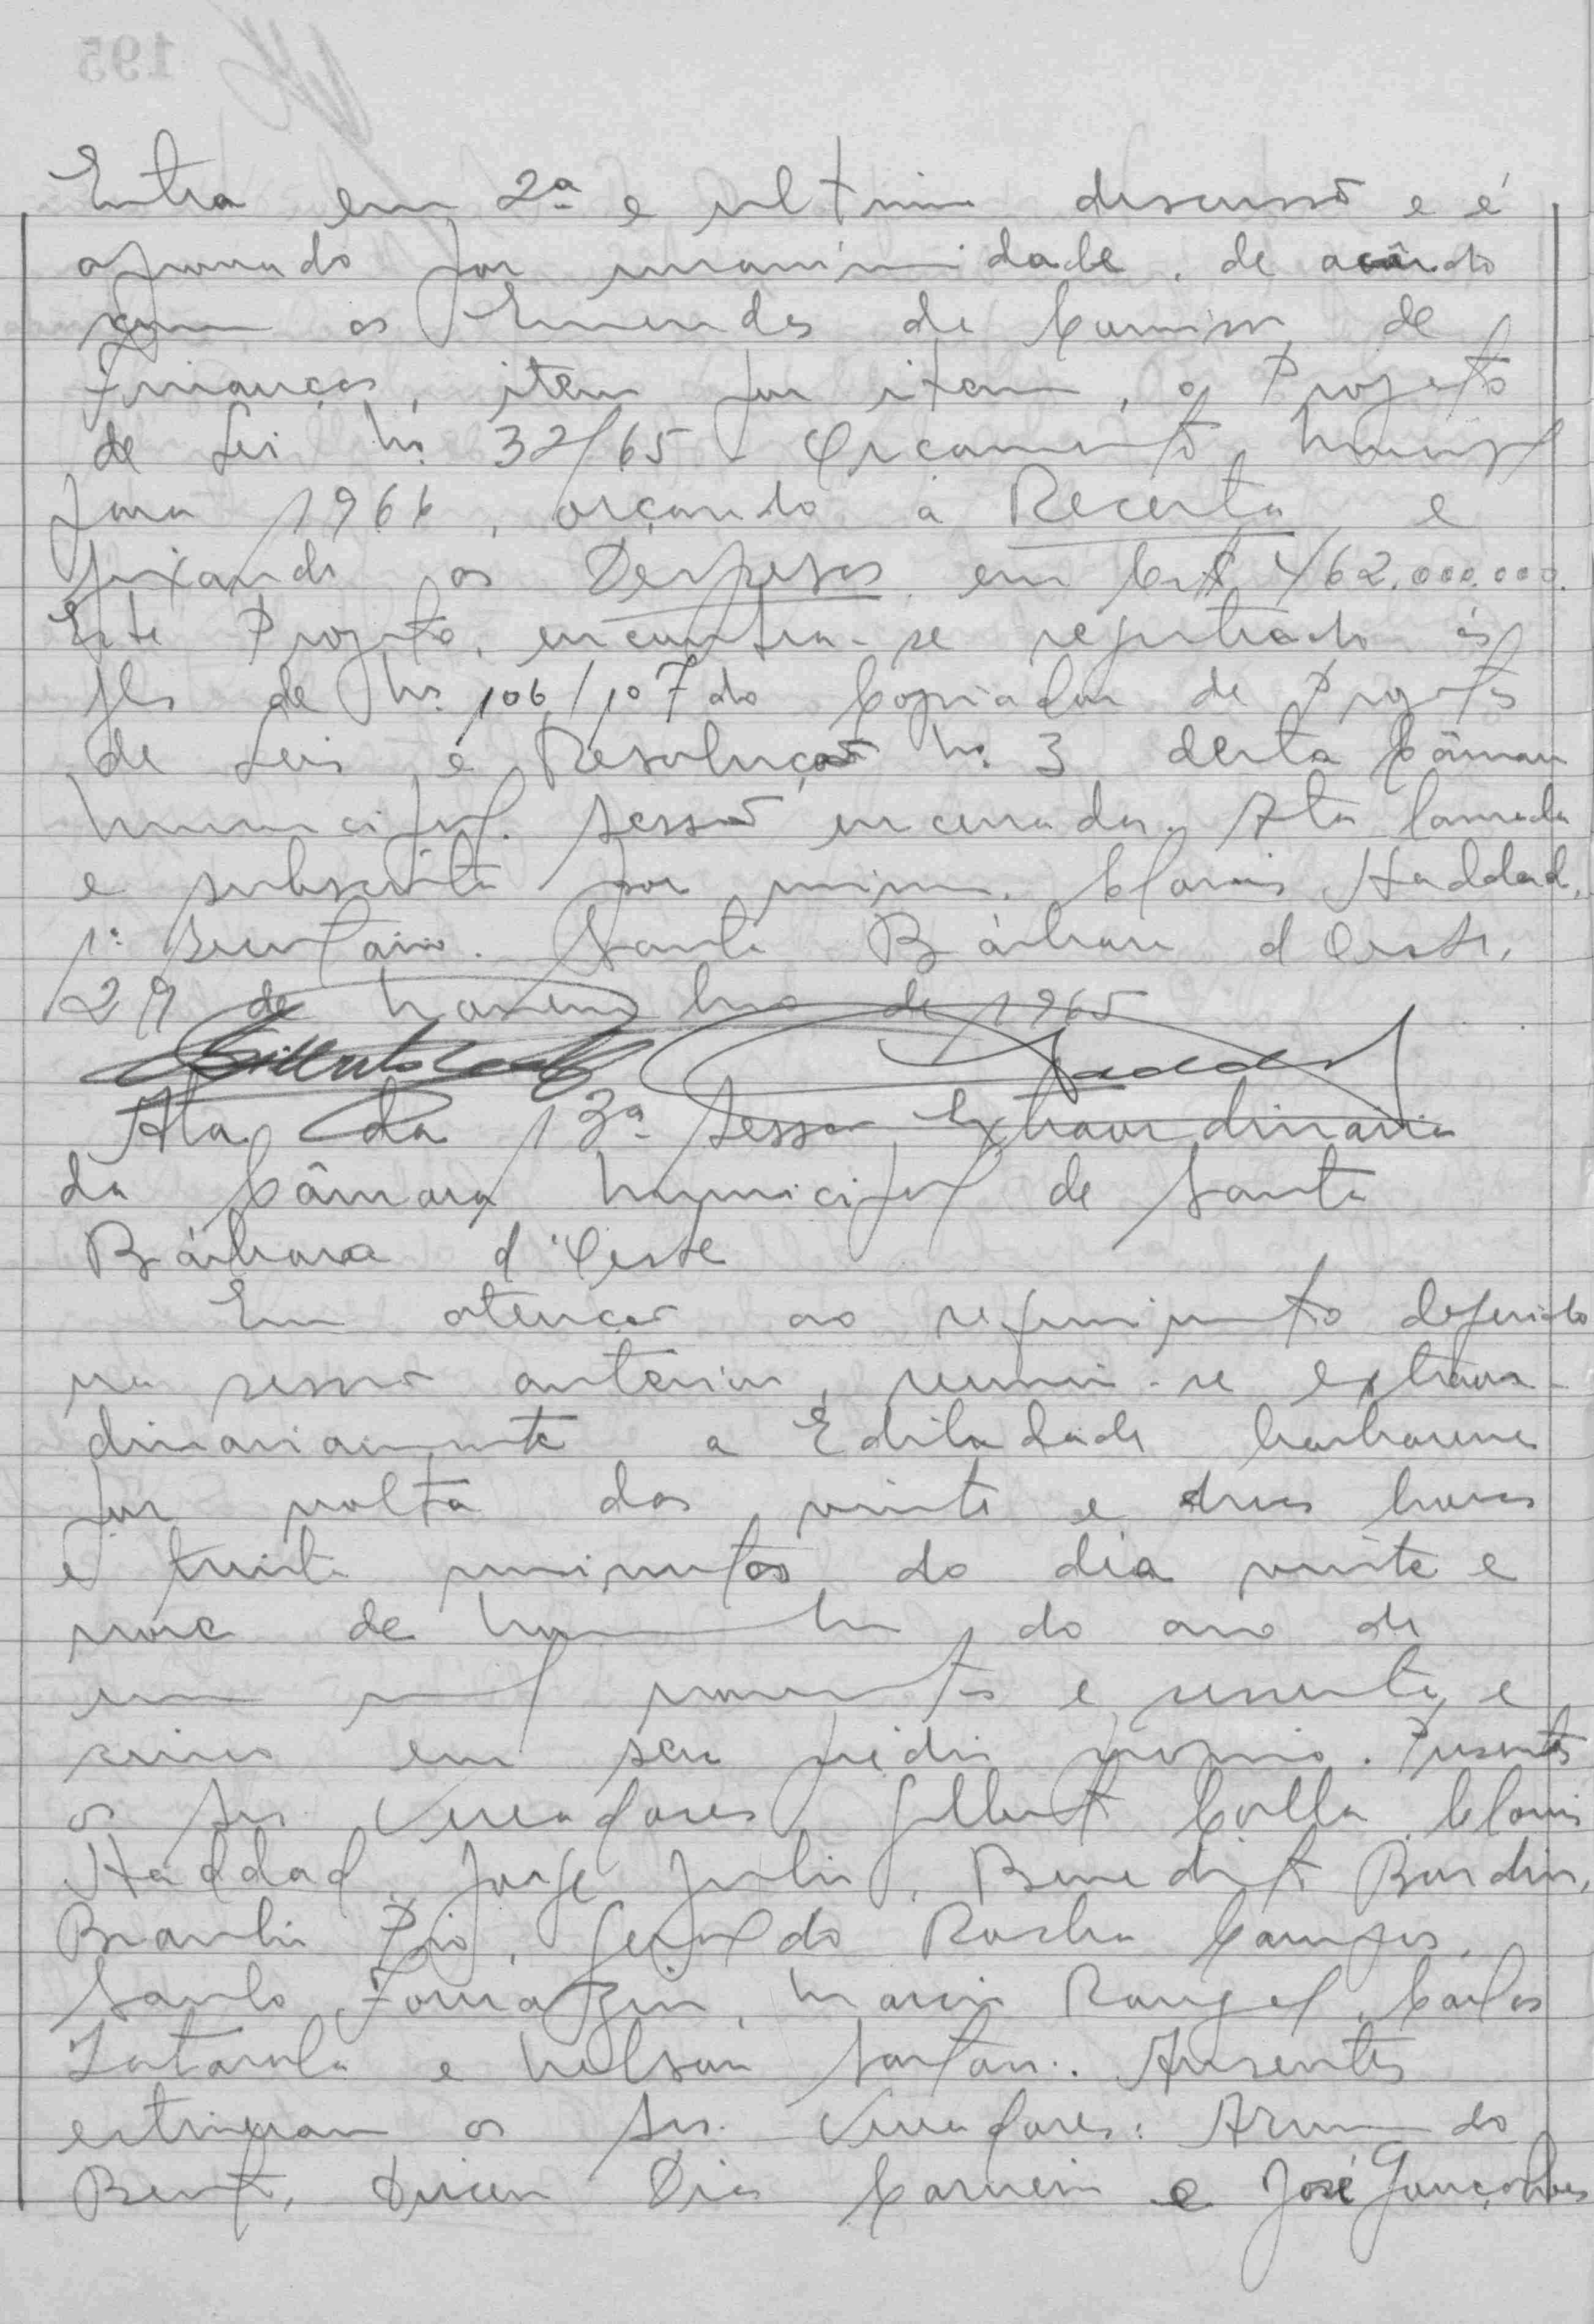 Entra em 2ª e ultima discussão e é
aprovado por unanimidade, de acôrdo
com as Emendas da Comissão de
Finanças, item por item, o Projeto
de Lei nº 32/65 - Orçamento Municipal
para 1966, orçando a Receita e
fixando as Despesas em Cr$ 462.000.000.
Este Projeto, encontra-se registrado às
fls de nº 106/107 do Copiador de Projetos
de Leis e Resolução nº 3 desta Câmara
Municipal. Sessão encerrada. Ata lavrada
e subscrita por mim, Clovis Haddad,
1º Secretario. Santa Bárbara d'Oeste,
29 de Novembro de 1965
Haddad
Ata da 13ª Sessão Extraordinaria
da Câmara Municipal de Santa
Bárbara d'Oeste
Em atenção ao requerimento deferido
na sessão anterior, reuniu-se extraor-
dinariamente a Edilidade barbarense
por volta das vinte e duas horas
e trinta minutos do dia vinte e
nove de Novembro do ano de
um mil novecentos e sessenta e
cinco em seu prédio próprio. Presentes
os Srs. Vereadores Gilberto Colla, Clovis
Haddad, Jorge Julio, Benedito Bordin,
Braulio Pio, Geraldo Rocha Campos,
Santo Tomazin, Mario Rangel, Carlos
e Nelson Sartori. Ausentes
estiveram os Srs. Vereadores: Armando
Bento, Dirceu Dias Carneiro e José Gonçalves
195